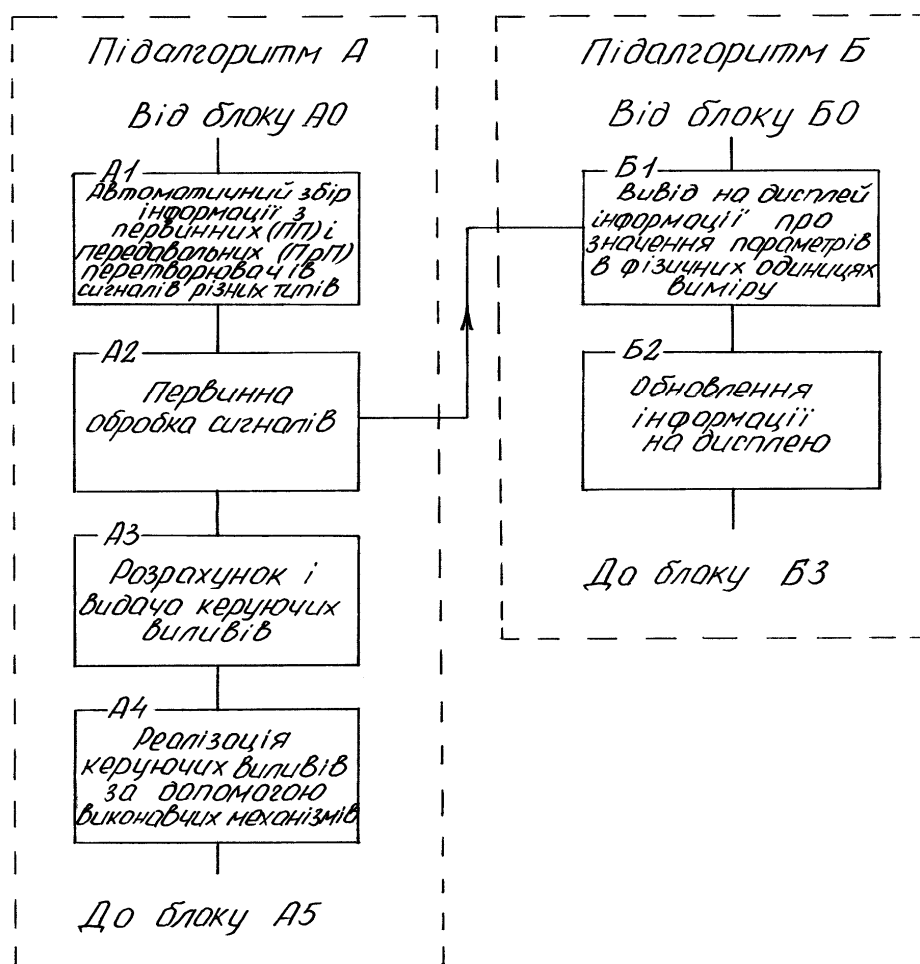 Підалгоритм А
Від блоку А0
А1
Автоматичний збір
інформації з
первинних (ПП) і
передавальних (ПрП)
перетворювачів
сигналів різних типів
А2
Первинна
обробка сигналів
А3
Розрахунок і
видача керуючих
виливів
А4
Реалізація
керуючих виливів
за допомогою
виконавчих механізмів
До блоку А5
Підалгоритм Б
Від блоку Б0
Б1
Вивід на дисплей
інформації про
значення параметрів
в фізичних одиницях
виміру
Б2
Обновлення
інформації
на дисплею
До блоку Б3